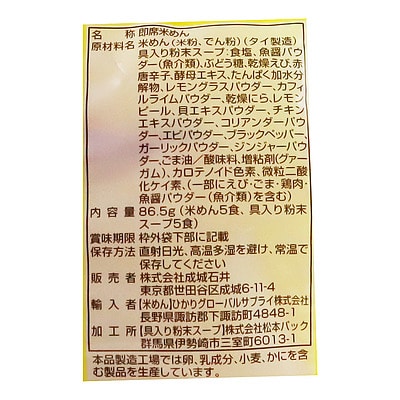 名称 即席米めん
原材料名 米めん(米粉、でん粉)(タイ製造)
具入り粉末スープ:食塩、魚醤パウ
ダー(魚介類)、ぶどう糖、乾燥えび、赤
唐辛子、酵母エキス、たんぱく加水分
解物、レモングラスパウダー、カフィ
ルライムパウダー、乾燥にら、レモン
ピール、貝エキスパウダー、チキン
エキスパウダー、コリアンダーパウ
ダー、エビパウダー、ブラックペッパー、
ガーリックパウダー、ジンジャーパウ
ダー、ごま油/酸味料、増粘剤(グァー
ガム)、カロテノイド色素、微粒二酸
化ケイ素、(一部にえび・ごま・鶏肉・
魚醤パウダー(魚介類)を含む)
内容量 86.5g(米めん5食、具入り粉末
スープ5食)
賞味期限 枠外袋下部に記載
保存方法 直射日光、高温多湿を避け、常温で
保存してください
販売者 株式会社成城石井
東京都世田谷区成城6-11-4
輸入者 【米めん】ひかりグローバルサプライ株式会社
長野県諏訪郡下諏訪町4848-1
加工所 【具入り粉末スープ】株式会社松本パック
群馬県伊勢崎市三室町6013-1
本品製造工場では卵、乳成分、小麦、かにを含
む製品を生産しています。